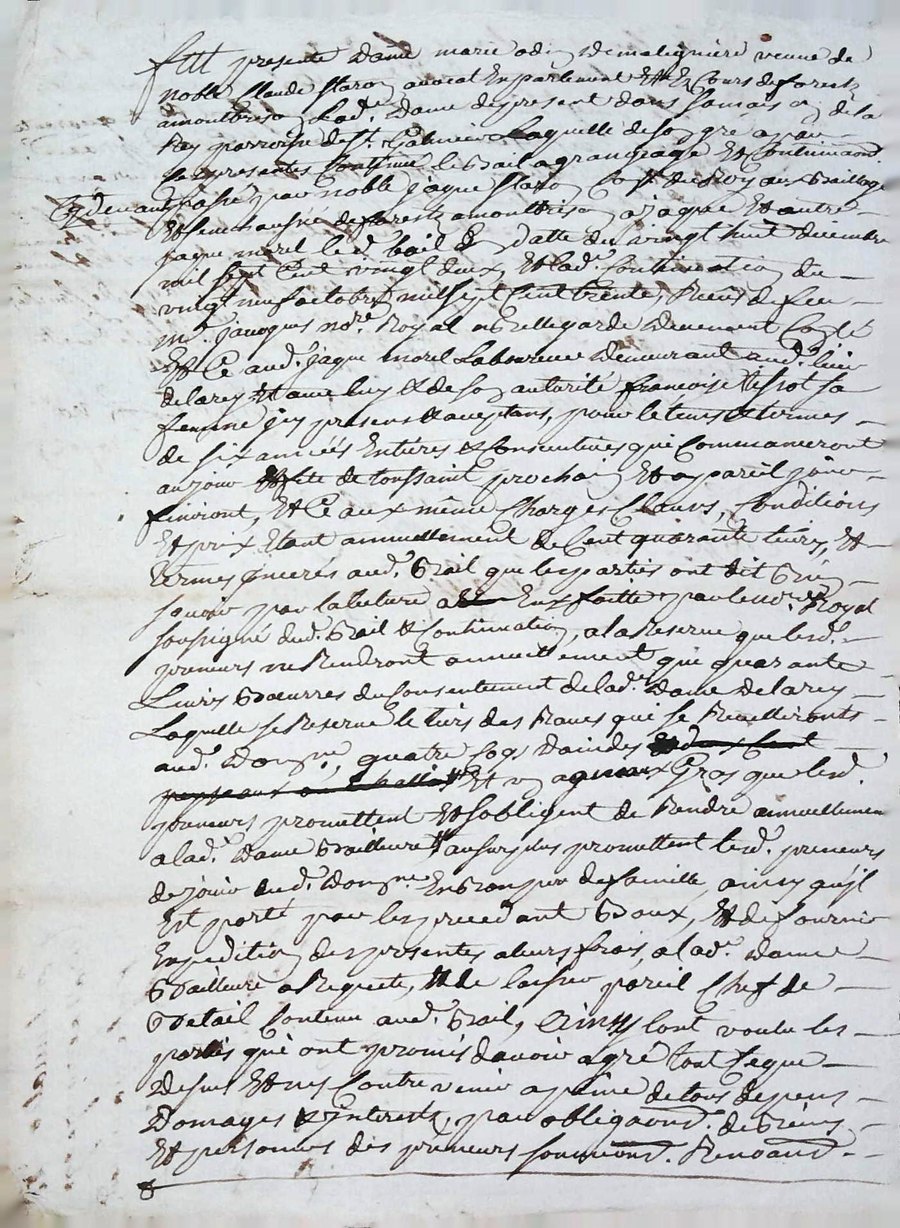 fut presente dame marie odin de malignière veuve de
noble Claude Staron avocat En parlement Et En Cours de forestz
a montbrison Lad.e dame de present dans sa maison de la
Rey parroisse de St. Galmier Laquelle de son gré a par
les presentes Continué le bail a grangeage Et Continuaon
Cy devant passé par noble jaque Staron Con.r du Roy aux Bailliage
Et senechaussée de forestz a montbrison, a jaque Et autre
jaque morel le d. bail En datte du vingt huit decembre
mil sept Cent vingt deux, Et lad.e Continuation du
vingt neuf octobre mil sept Cent trente, Receus de feu
m.e jacques no.re Royal a Bellegarde
Et Ce aud. jaque morel Laboureur demeurant aud. lieu
de la rey Et avec luy & de son autorité françoise tissot sa
femme jcy presens & acceptans, pour le tems & termes
de six années Entieres & Consecutives qui Commanceront
au jour Et fete de toussaint prochain Et a pareil jour
finiront, Et Ce aux même Charges Clauses, Conditions
Et prix Etant annuellement de Cent quarante livres, Et
termes Enoncés aud. Bail que les parties ont dit Bien
sçavoir par la lecture a Eux faitte par le no.re Royal
soussigné dud. Bail & Continuation, a la Reserve que lesd.
preneurs ne Rendront annuellement que quarante
Livres Bœurres du Consentement de lad.e dame de la rey
Laquelle se Reserve le tiers des Raves qui se Recueilliront
aud. Domaine, quatre Coq Daindes Et deux Cent
Et un agneaux Gras que lesd.
preneurs promettent Et sobligent de Rendre annuellement
a lad.e dame Bailleure Et au surplus promettent lesd. preneurs
de jouir dud. Domne En Bon per de famille, ainsy qu'jl
Est porté par les precedant Baux, Et de fournir
Expedition des presentes a leurs frais, a lad.e dame
Bailleure a Requete, Et de laisser pareil Chef de
Betail Contenu aud. Bail, Ainsy Lont voulu les
parties qui ont promis davoir agré tout Ceque
dessus Et ny Contrevenir a peine de tous depens
Domages & jnterests, par obligaond. de Biens
Et personnes des preneurs soumiond. Renoaond.